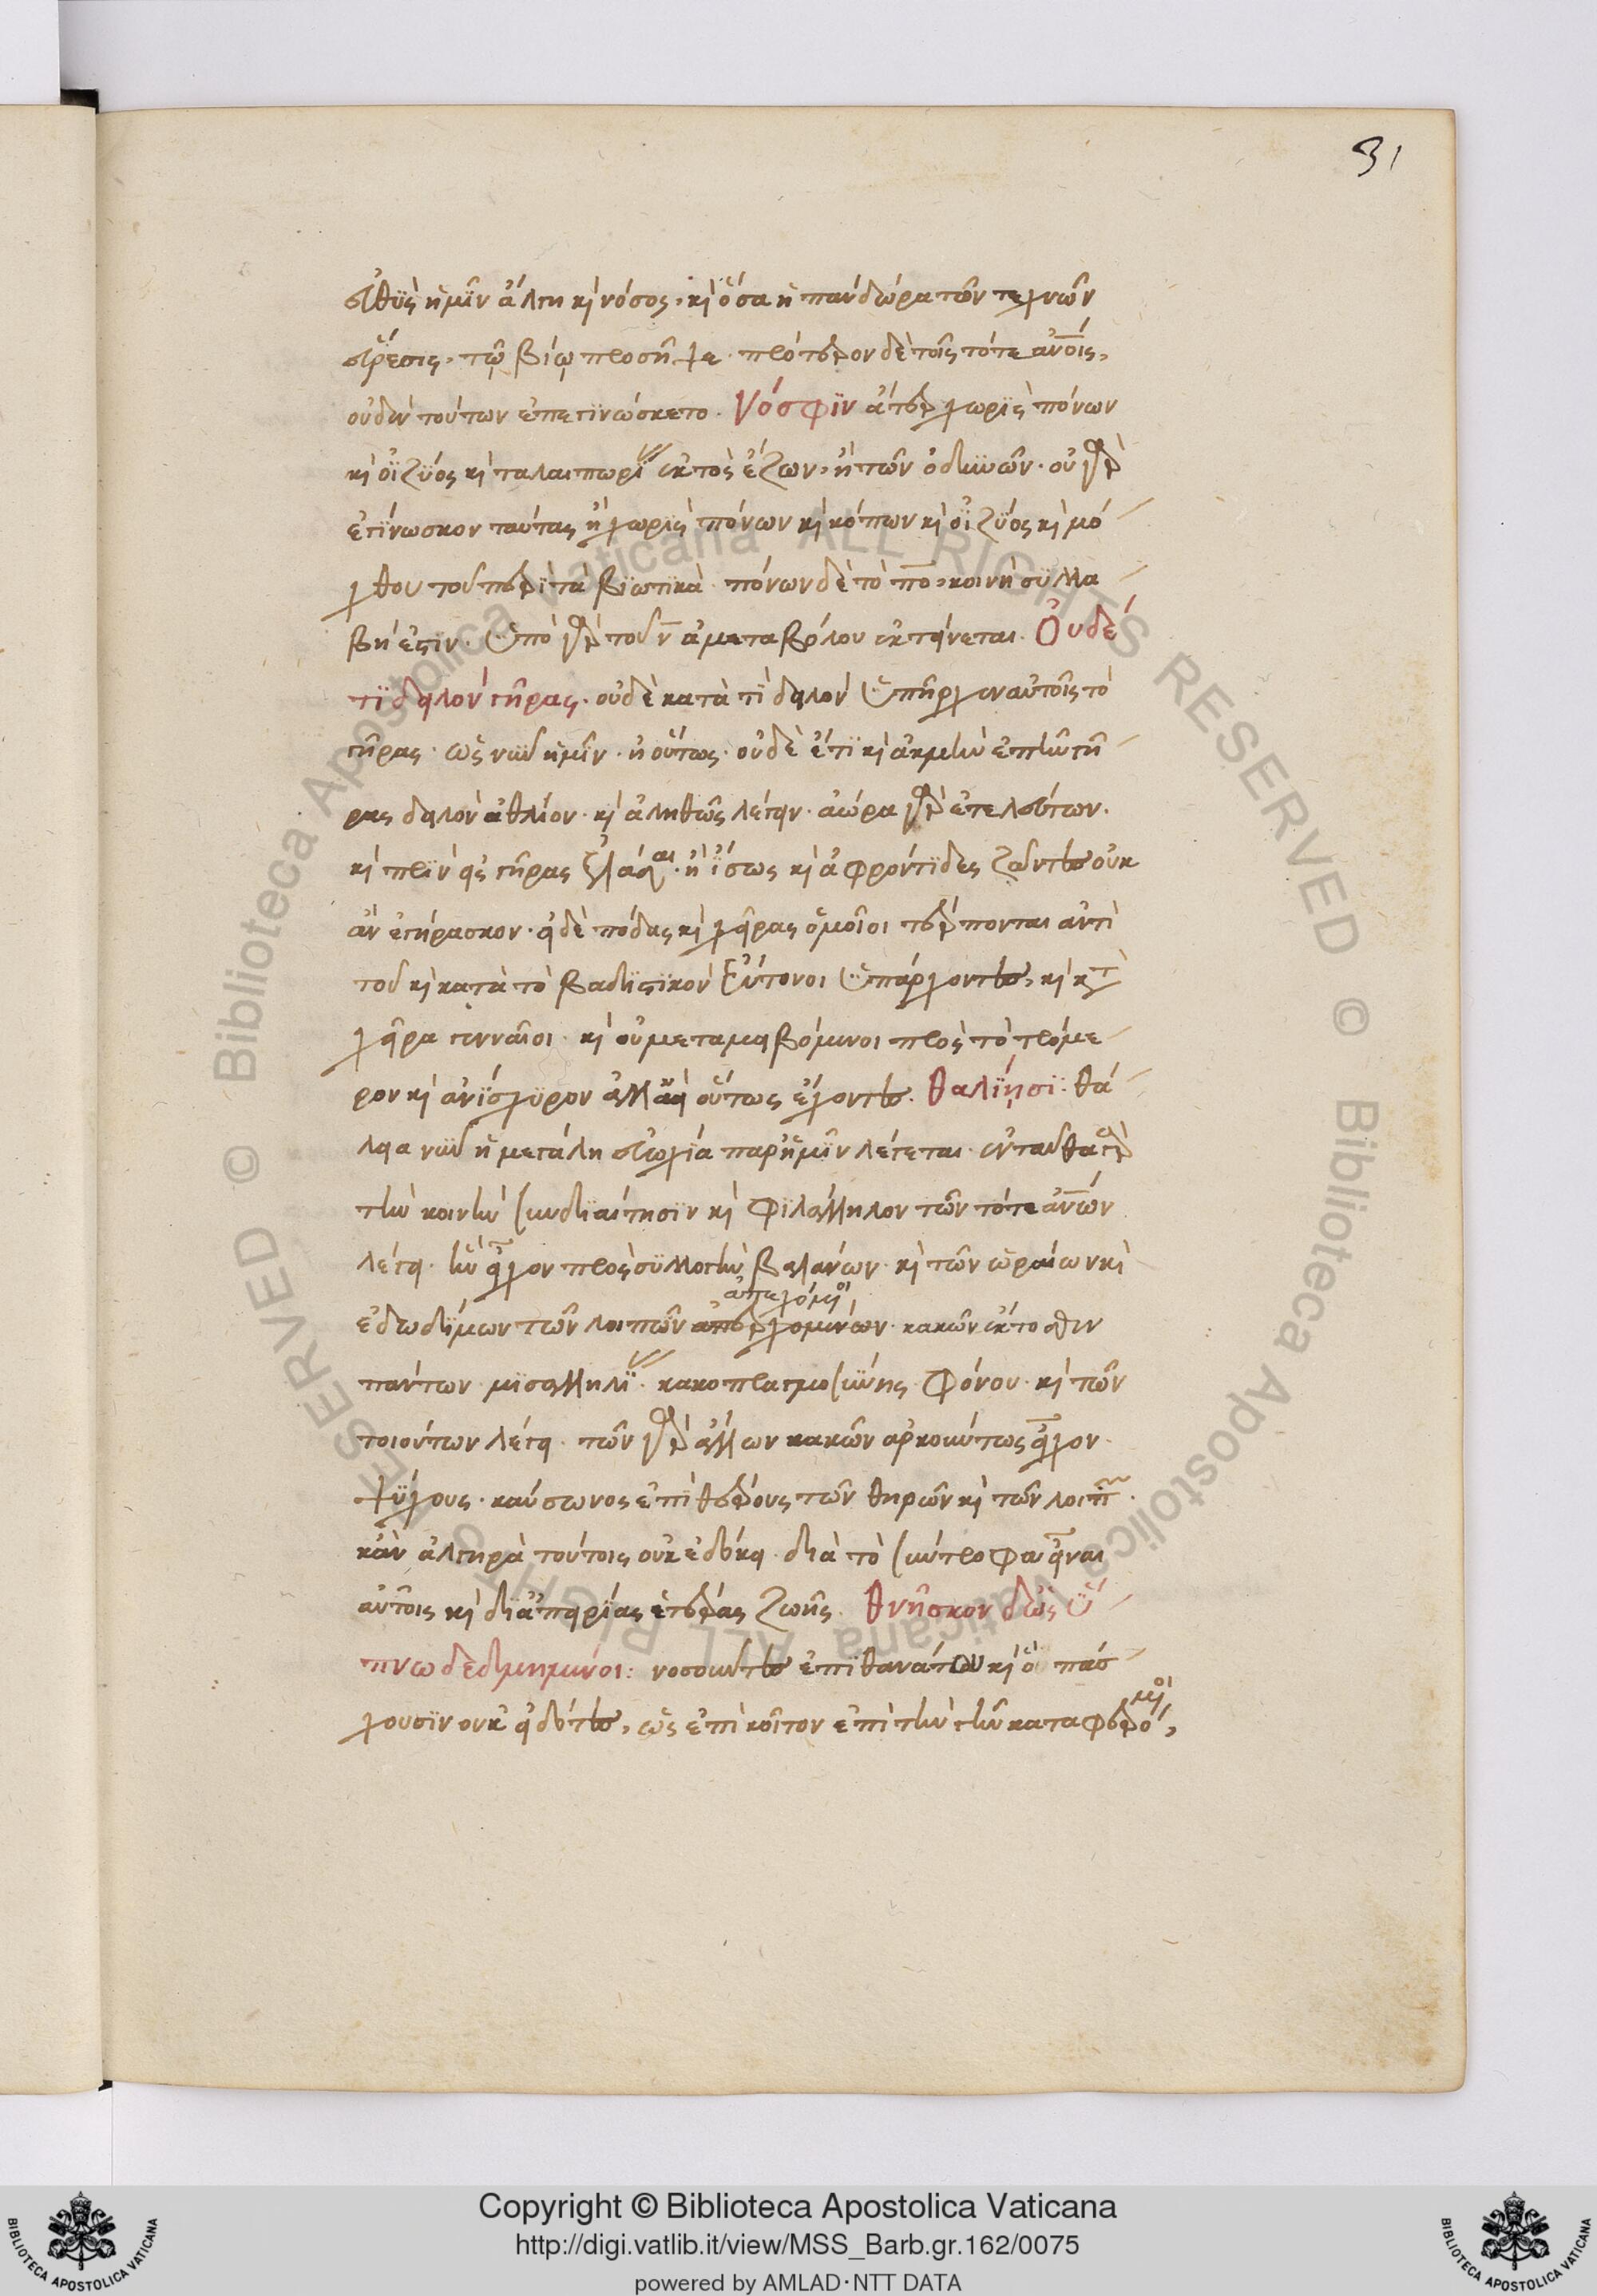 31
εὐθὺς ἡμῖν ἄλγη καὶ νόσος, καὶ ὅσα ἡ πανδώρα τῶν τεχνῶν
εὕρεσις, τῷ βίῳ προσῆψε. πρότερον δὲ τοῖς τότε ἀνοῖς,
οὐδὲν τούτων ἐπεγινώσκετο. Νόσφιν ἄτερ χωρὶς πόνων
καὶ ὀϊζύος καὶ ταλαιπωρί ἐκτὸς ἔζων, ἢ τῶν ὀδυνῶν. οὐ γὰρ
ἐγίνωσκον ταύτας ἢ χωρὶς πόνων καὶ κόπων καὶ ὀϊζύος καὶ μό
χθου τοῦ περὶ τὰ βιωτικά. πόνων δὲ τὸ πο, κοινὴ συλλα
βή ἐστιν. ὑπὸ γὰρ τοῦ ν ἀμεταβόλου ἐκτείνεται. Οὐδέ
τι δειλὸν γῆρας. οὐδὲ κατὰ τὶ δειλὸν ὑπῆρχεν αὐτοῖς τὸ
γῆρας. ὡς νῦν ἡμῖν. ἢ οὕτως. οὐδὲ ἔτι καὶ ἀκμὴν ἐπῆν γῆ
ρας δειλὸν ἄθλιον. καὶ ἀληθῶς λέγειν. ἄωρα γὰρ ἐτελεύτων.
καὶ πρὶν εἰς γῆρας ἐλάσαι. ἢ ἴσως καὶ ἀφρόντιδες ζῶντες οὐκ
ἂν ἐγήρασκον. ἀεὶ δὲ πόδας καὶ χεῖρας ὁμοῖοι τέρπονται ἀντὶ
τοῦ καὶ κατὰ τὸ βαδιστικὸν εὔτονοι ὑπάρχοντες, καὶ κτ
χεῖρα γενναῖοι. καὶ οὐ μεταμειβόμενοι πρὸς τὸ τρόμε
ρον καὶ ἀνίσχυρον ἀλλ' ἀεὶ οὕτως ἔχοντες. θαλίῃσι: θά
λεια νῦν ἡ μεγάλη εὐωχία παρ' ἡμῖν λέγεται. ἐνταῦθα γὰρ
τὴν κοινὴν συνδιαίτησιν καὶ φιλάλληλον τῶν τότε ἀνων
λέγει. ἣν εἶχον πρὸς συλλογὴν βαλάνων. καὶ τῶν ὡραίων καὶ
ἐδωδίμων τῶν λοιπῶν ἀπερχομένων. κακῶν ἔκτοσθεν
ἀπεχόμενοι
πάντων μισαλληλί. κακοπραγμοσύνης. φόνου. καὶ τῶν
τοιούτων λέγει. τῶν γὰρ ἄλλων κακῶν ἀρκούντως εἶχον.
ψύχους. καύσωνος ἐπὶ θέρους τῶν θηρῶν καὶ τῶν λοιπῶν.
κἂν ἀλγηρὰ τούτοις οὐκ ἐδόκει. διὰ τὸ σύντροφα εἶναι
αὐτοῖς καὶ δι' ἀπειρίας ἑτέρας ζωῆς. Θνῆσκον δ' ὡς ὕ
πνῳ δεδμημένοι: νοσοῦντες ἐπὶ θανάτου καὶ ὃ πάσ
χουσιν οὐκ εἰδότες, ὡς ἐπὶ κοῖτον ἐπὶ τὴν γῆν καταφερόμενοι,
Copyright © Biblioteca Apostolica Vaticana
http://digi.vatlib.it/view/MSS_Barb.gr.162/0075
powered by AMLAD·NTT DATA